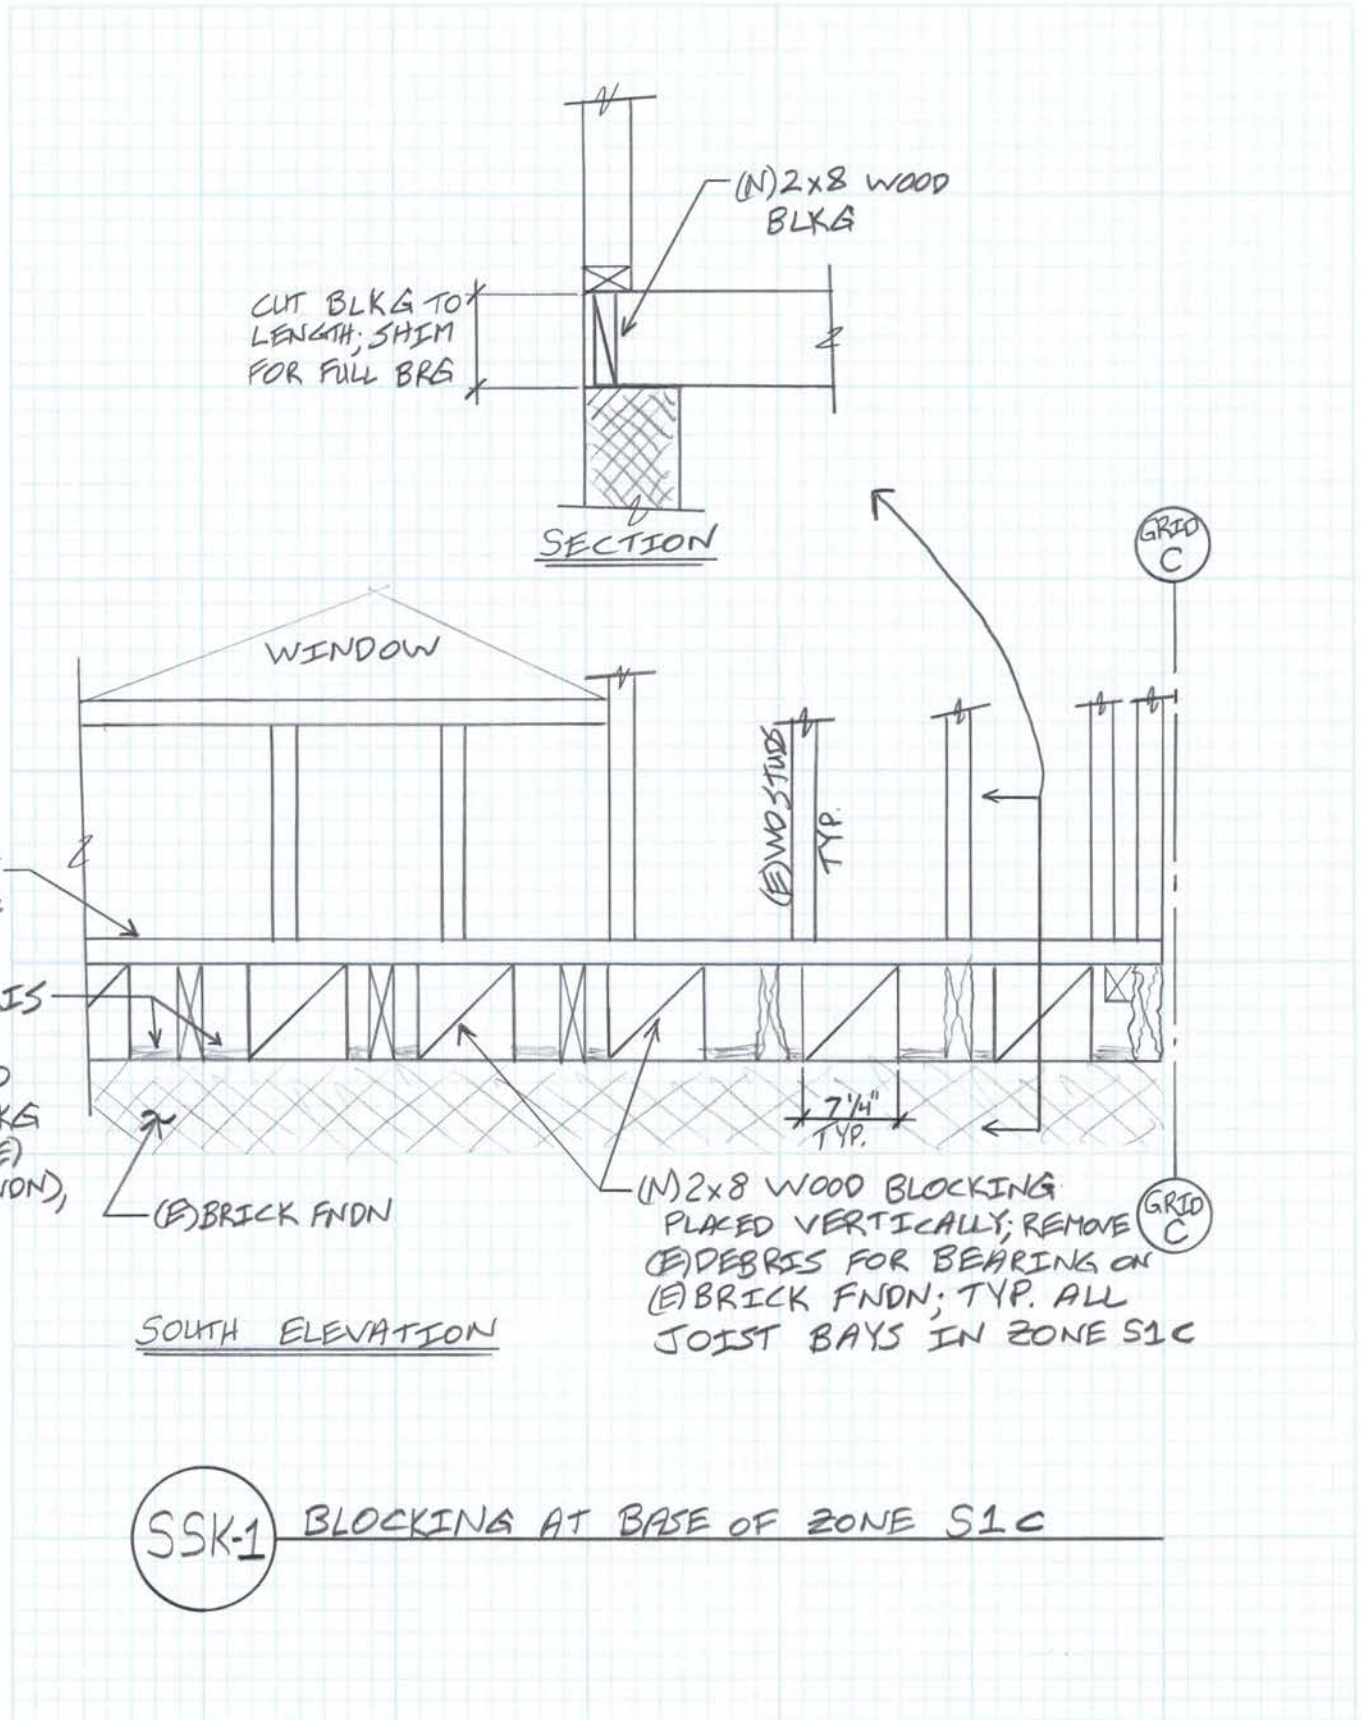 (N)2x8 WOOD
BLKG
CUT BLKG TO
LENGTH; SHIM
FOR FULL BRG
SECTION
GRID
C
WINDOW
(E)WD STUDS
TYP.
7 1/4"
TYP.
(E)BRICK FNDN
(N)2x8 WOOD BLOCKING
PLACED VERTICALLY; REMOVE
(E)DEBRIS FOR BEARING ON
(E)BRICK FNDN; TYP. ALL
JOIST BAYS IN ZONE S1C
GRID
C
SOUTH ELEVATION
SSK-1
BLOCKING AT BASE OF ZONE S1C